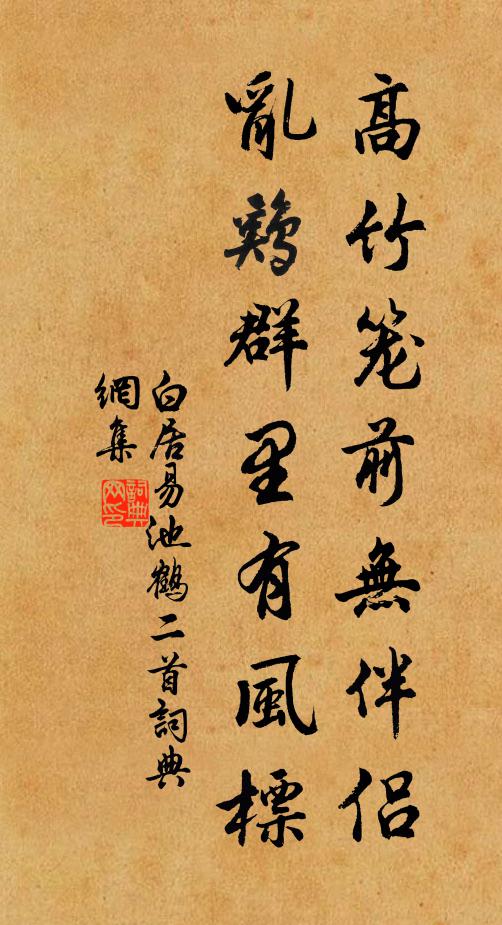 高竹笼前無伴侣
亂鷄群里有風標
白居易池鶴二首詞典
網集
詞典
网印